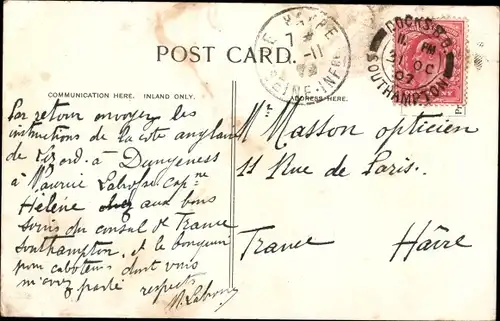 POST CARD.
COMMUNICATION HERE. INLAND ONLY.
ADDRESS HERE.
LE HAVRE
7
11
SEINE-INFRE
DOCKS B.O.
11 PM
31 OC
07
SOUTHAMPTON
Par retour envoyez les
instructions de la cote anglaise
de à Dungeness
à Maurice Cap.ne
Hélène aux bons
soins du consul de France
Southampton, et le bouquin
pour caboteurs dont vous
m'avez parlé respects
Mr Masson opticien
11 Rue de Paris.
France Hâvre